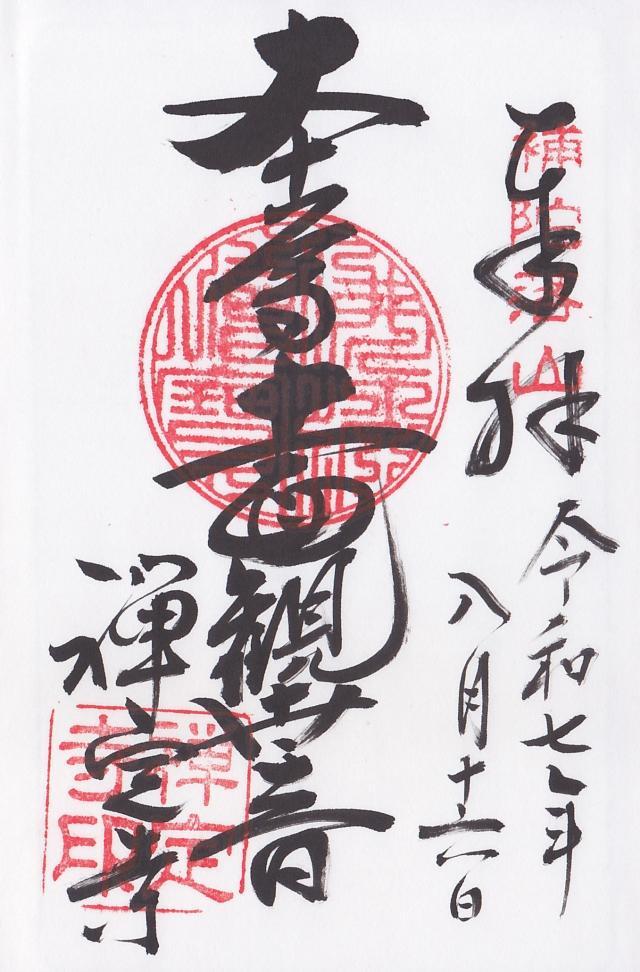 奉拝
補陀落山
令和七年
八月十六日
本尊十一面観世音
禅定寺
禅定寺印